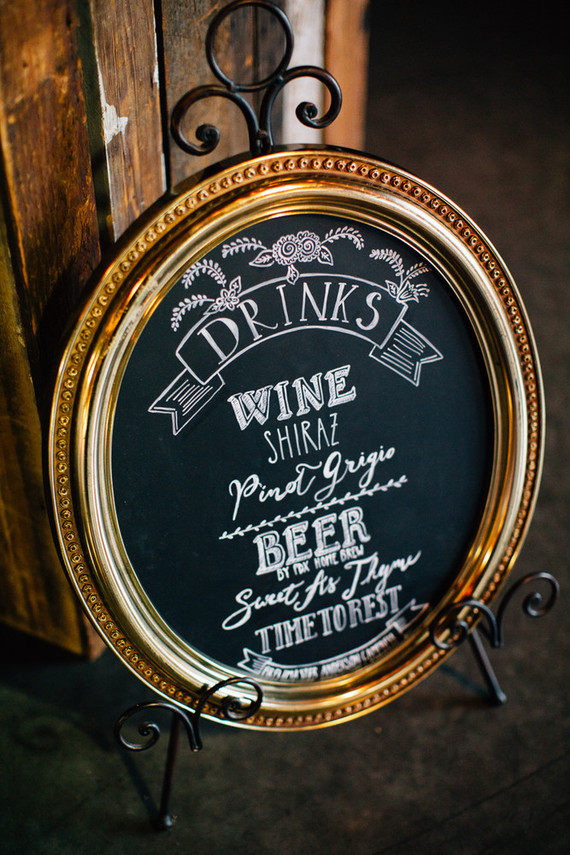 DRINKS
WINE
SHIRAZ
Pinot Grigio
BEER
BY FOX HOME BREW
Sweet As Thyme
TIME TO REST
ANDERSON